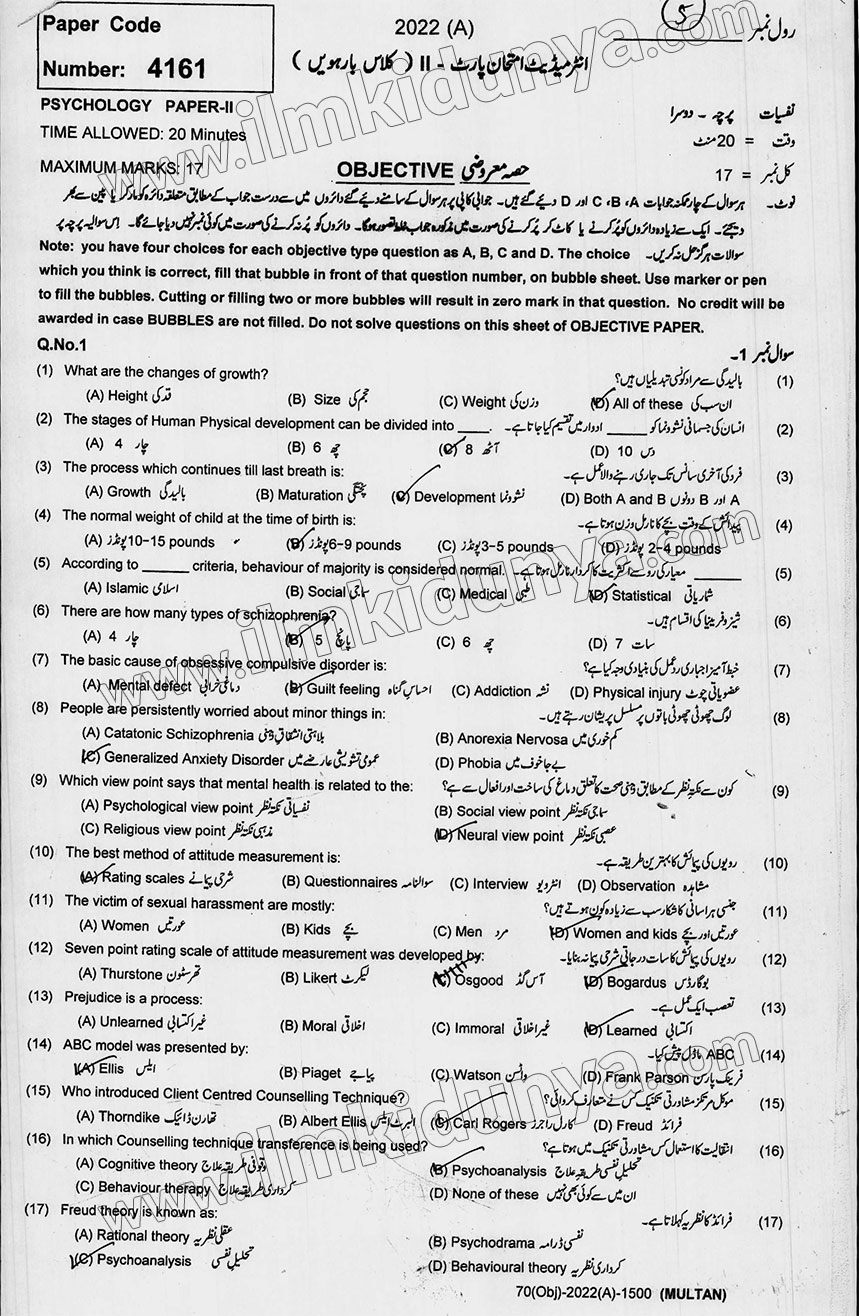 Paper Code
Number: 4161
2022 (A)
5
رول نمبر
انٹرمیڈیٹ امتحان پارٹ - II (کلاس بارہویں)
PSYCHOLOGY PAPER-II
نفسیات پرچہ - دوسرا
TIME ALLOWED: 20 Minutes
وقت = 20 منٹ
MAXIMUM MARKS: 17
OBJECTIVE حصہ معروضی
کل نمبر = 17
نوٹ۔ ہر سوال کے چار ممکنہ جوابات A، B، C اور D دیئے گئے ہیں۔ جوابی کاپی پر ہر سوال کے سامنے دیئے گئے دائروں میں سے درست جواب کے مطابق متعلقہ دائرہ کو مارکر یا پین سے بھر
دیجئے۔ ایک سے زیادہ دائروں کو پُر کرنے یا کاٹ کر پُر کرنے کی صورت میں مذکورہ جواب غلط تصور ہوگا۔ دائروں کو پُر نہ کرنے کی صورت میں کوئی نمبر نہیں دیا جائے گا۔ اِس سوالیہ پرچہ پر
سوالات ہرگز حل نہ کریں۔
Note: you have four choices for each objective type question as A, B, C and D. The choice
which you think is correct, fill that bubble in front of that question number, on bubble sheet. Use marker or pen
to fill the bubbles. Cutting or filling two or more bubbles will result in zero mark in that question. No credit will be
awarded in case BUBBLES are not filled. Do not solve questions on this sheet of OBJECTIVE PAPER.
Q.No.1
سوال نمبر 1-
(1) What are the changes of growth? بالیدگی سے مراد کونسی تبدیلیاں ہیں؟ (1)
(A) Height قد کی (B) Size حجم کی (C) Weight وزن کی (D) All of these ان سب کی
(2) The stages of Human Physical development can be divided into ____. انسان کی جسمانی نشوونما کو ____ ادوار میں تقسیم کیا جاتا ہے۔ (2)
(A) 4 چار (B) 6 چھ (C) 8 آٹھ (D) 10 دس
(3) The process which continues till last breath is: فرد کی آخری سانس تک جاری رہنے والا عمل ہے۔ (3)
(A) Growth بالیدگی (B) Maturation پختگی (C) Development نشوونما (D) Both A and B A اور B دونوں
(4) The normal weight of child at the time of birth is: پیدائش کے وقت بچے کا نارمل وزن ہوتا ہے۔ (4)
(A) 10-15 pounds پونڈز (B) 6-9 pounds پونڈز (C) 3-5 pounds پونڈز (D) 2-4 pounds پونڈز
(5) According to ______ criteria, behaviour of majority is considered normal. ______ معیار کی رو سے اکثریت کا کردار نارمل ہوتا ہے۔ (5)
(A) Islamic اسلامی (B) Social سماجی (C) Medical طبی (D) Statistical شماریاتی
(6) There are how many types of schizophrenia? شیزوفرینیا کی اقسام ہیں۔ (6)
(A) 4 چار (B) 5 پانچ (C) 6 چھ (D) 7 سات
(7) The basic cause of obsessive compulsive disorder is: خبط آمیز اجباری ردعمل کی بنیادی وجہ کیا ہے؟ (7)
(A) Mental defect دماغی خرابی (B) Guilt feeling احساسِ گناہ (C) Addiction نشہ (D) Physical injury عضویاتی چوٹ
(8) People are persistently worried about minor things in: لوگ چھوٹی چھوٹی باتوں پر مسلسل پریشان رہتے ہیں۔ (8)
(A) Catatonic Schizophrenia (B) Anorexia Nervosa کم خوری میں
(C) Generalized Anxiety Disorder عمومی تشویشی عارضے میں (D) Phobia بے جا خوف میں
(9) Which view point says that mental health is related to the: کون سے نکتہ نظر کے مطابق ذہنی صحت کا تعلق دماغ کی ساخت اور افعال سے ہے؟ (9)
(A) Psychological view point نفسیاتی نکتہ نظر (B) Social view point سماجی نکتہ نظر
(C) Religious view point مذہبی نکتہ نظر (D) Neural view point عصبی نکتہ نظر
(10) The best method of attitude measurement is: رویوں کی پیمائش کا بہترین طریقہ ہے۔ (10)
(A) Rating scales شرحی پیمانے (B) Questionnaires سوالنامہ (C) Interview انٹرویو (D) Observation مشاہدہ
(11) The victim of sexual harassment are mostly: جنسی ہراسانی کا شکار سب سے زیادہ کون ہوتے ہیں؟ (11)
(A) Women عورتیں (B) Kids بچے (C) Men مرد (D) Women and kids عورتیں اور بچے
(12) Seven point rating scale of attitude measurement was developed by: رویوں کی پیمائش کا سات درجاتی شرحی پیمانہ بنایا۔ (12)
(A) Thurstone تھرسٹون (B) Likert لیکرٹ (C) Osgood آس گڈ (D) Bogardus بوگارڈس
(13) Prejudice is a process: تعصب ایک عمل ہے۔ (13)
(A) Unlearned غیر اکتسابی (B) Moral اخلاقی (C) Immoral غیر اخلاقی (D) Learned اکتسابی
(14) ABC model was presented by: ABC ماڈل پیش کیا۔ (14)
(A) Ellis ایلس (B) Piaget پیاجے (C) Watson واٹسن (D) Frank Parson فرینک پارسن
(15) Who introduced Client Centred Counselling Technique? موکل مرتکز مشاورتی تکنیک کس نے متعارف کروائی؟ (15)
(A) Thorndike تھارن ڈائیک (B) Albert Ellis البرٹ ایلس (C) Carl Rogers کارل راجرز (D) Freud فرائڈ
(16) In which Counselling technique transference is being used? انتقالیت کا استعمال کس مشاورتی تکنیک میں ہوتا ہے؟ (16)
(A) Cognitive theory وقوفی طریقہ علاج (B) Psychoanalysis تحلیل نفسی طریقہ علاج
(C) Behaviour therapy کرداری طریقہ علاج (D) None of these ان میں سے کوئی بھی نہیں
(17) Freud theory is known as: فرائڈ کا نظریہ کہلاتا ہے۔ (17)
(A) Rational theory عقلی نظریہ (B) Psychodrama نفسی ڈرامہ
(C) Psychoanalysis تحلیل نفسی (D) Behavioural theory کرداری نظریہ
70(Obj)-2022(A)-1500 (MULTAN)
www.ilmkidunya.com
www.ilmkidunya.com
www.ilmkidunya.com